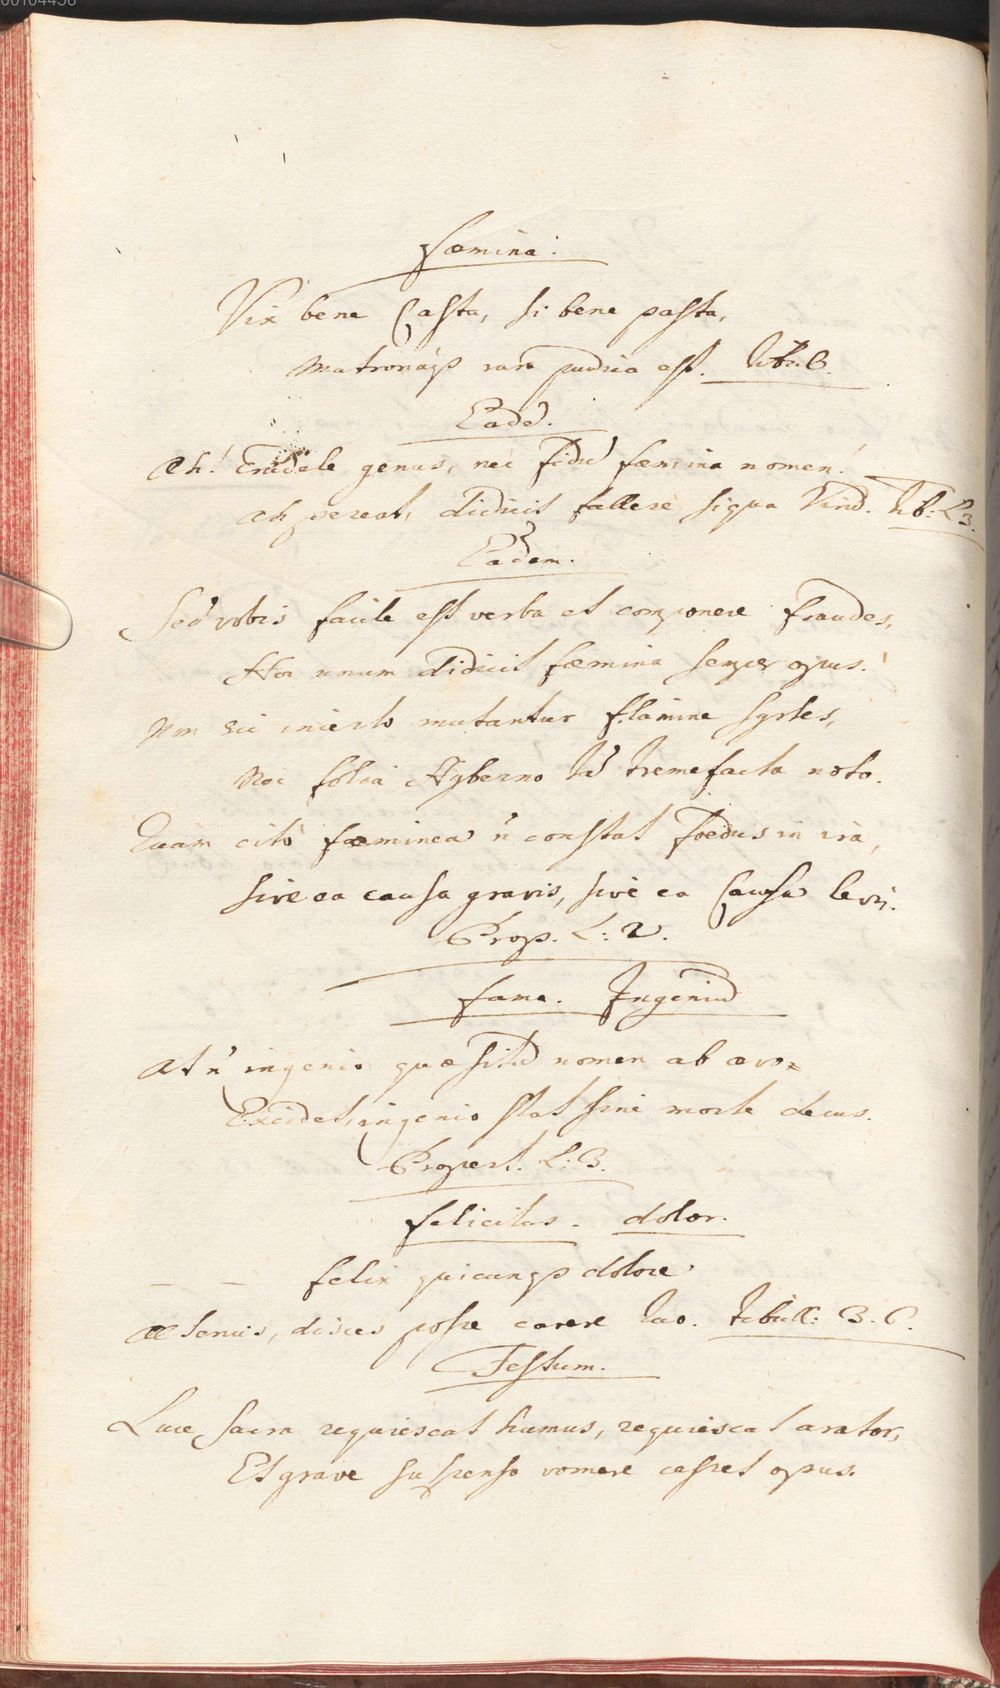 00104436
Fœmina:
Vix bene Casta, si bene pasta,
Matronáq3 rara pudica est. Tibul.
Eadē.
Ah! Crudele genus, nec fidū fœmina nomen!
Ah pereat, didicit fallere siqua Vird. Tib: L3.
Eadem.
Sed vobis facile est verba et componere fraudes,
Hoc unum didicit fœmina semper opus.
Non sic incerto mutantur flamine syrtes,
Nec folia Hyberno tā tremefacta noto.
Quàm citò fœminea n̄ constat foedus in irâ,
sive ea causa gravis, sivè ea Causa levis.
Prop. L: 2.
fama. Ingeniū
At n̄ ingenio quæsitū nomen ab ævo
Excidet, ingenio stat sine morte decus.
Propert. L: 3.
felicitas. dolor.
_ _ felix quicunq3 dolore
Alterius, disces posse carere tuo. Tibull: 3. 6.
Festum.
Luce sacra requiescat humus, requiescat arator,
Et grave suspenso vomere cesset opus.